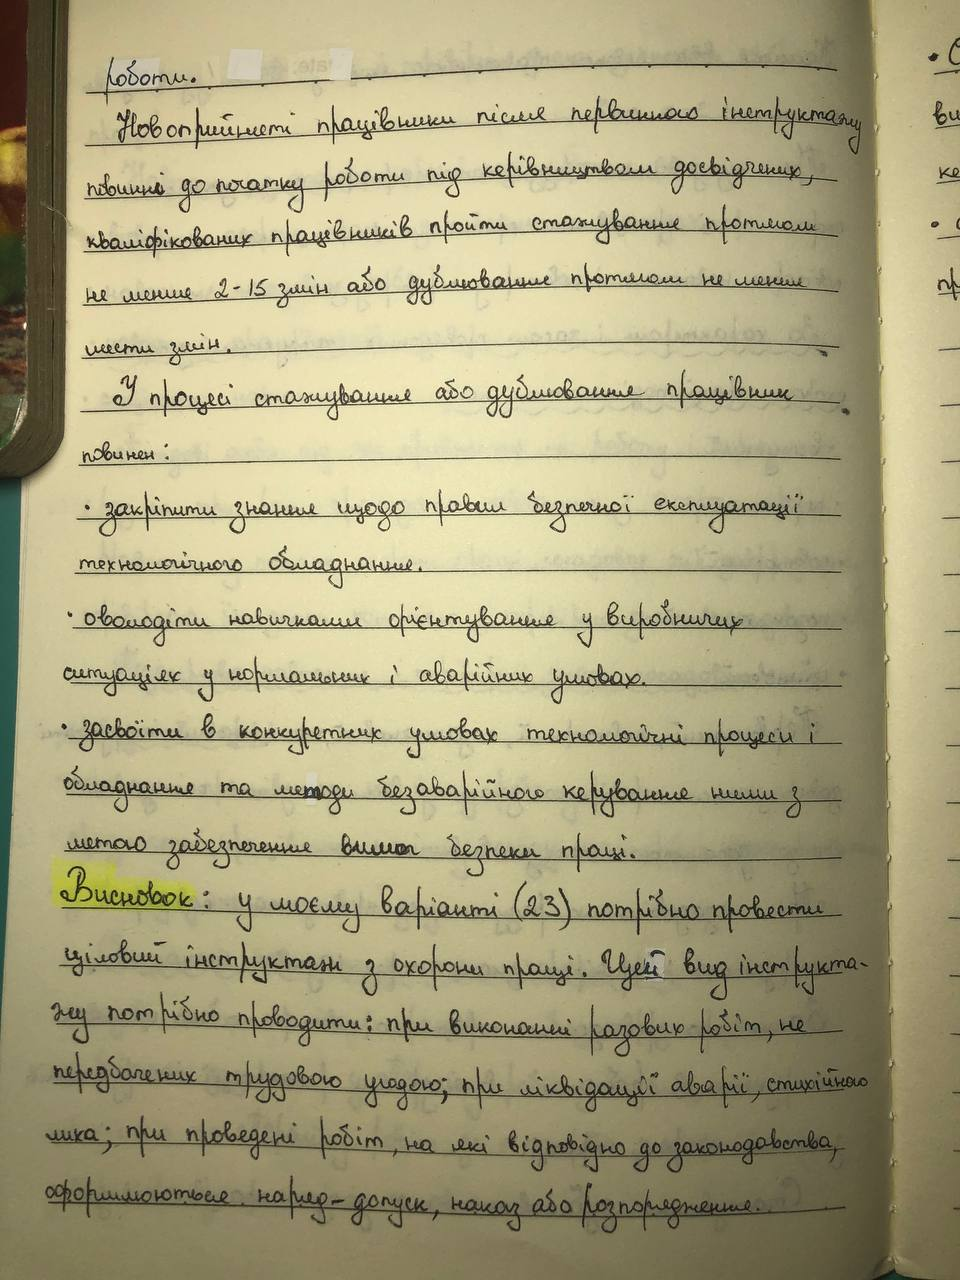 роботи.
Новоприйняті працівники після первинного інструктажу
повинні до початку роботи під керівництвом досвідчених,
кваліфікованих працівників пройти стажування протягом
не менше 2-15 змін або дублювання протягом не менше
шести змін.
У процесі стажування або дублювання працівник
повинен:
• закріпити знання щодо правил безпечної експлуатації
технологічного обладнання.
• оволодіти навичками орієнтування у виробничих
ситуаціях у нормальних і аварійних умовах.
• засвоїти в конкуретних умовах технологічні процеси і
обладнання та методи безаварійного керування ними з
метою забезпечення вимог безпеки праці.
Висновок: у моєму варіанті (23) потрібно провести
цільовий інструктаж з охорони праці. Цей вид інструкта-
жу потрібно проводити: при виконанні разових робіт, не
передбачених трудовою угодою; при ліквідації аварії, стихійного
лиха; при проведені робіт, на які відповідно до законодавства,
оформлюються наряд-допуск, наказ або розпорядження.
• О
ви
ке
•
пр